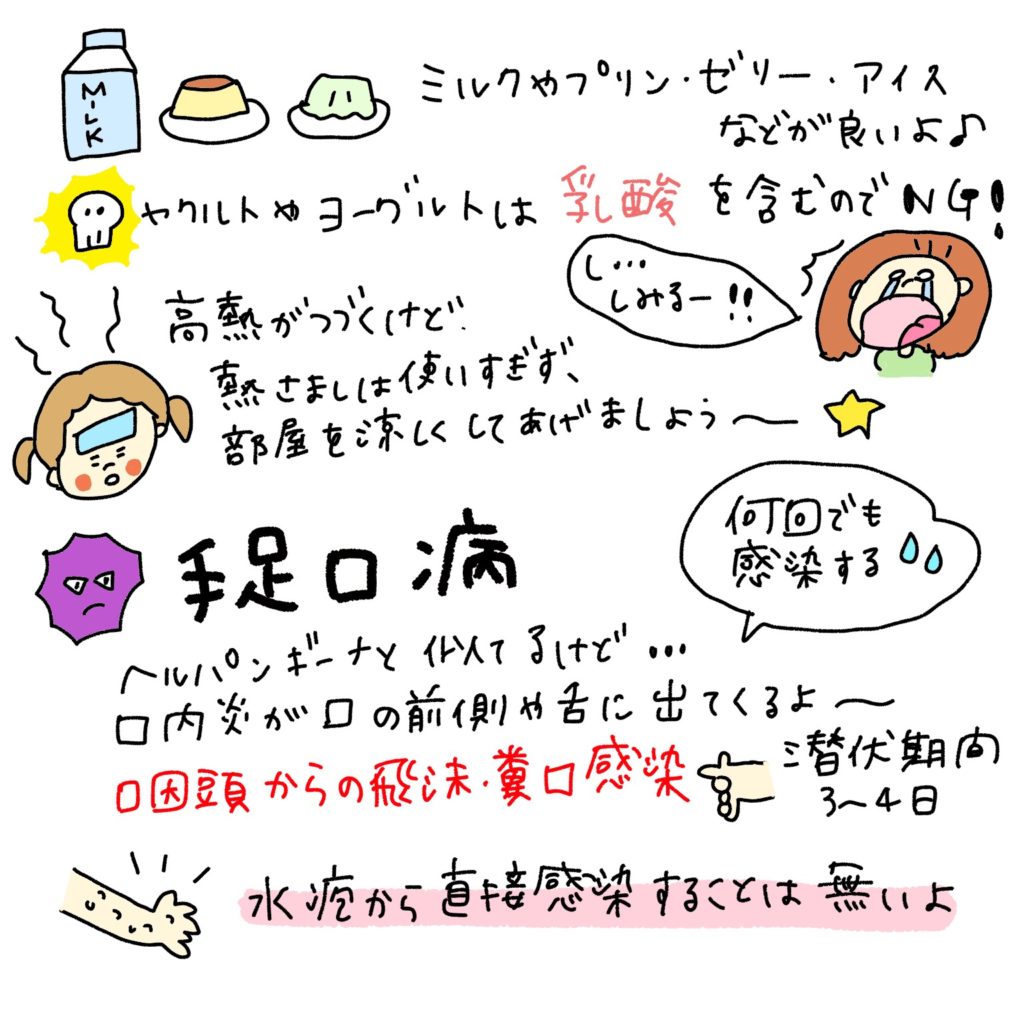 MILK
ミルクやプリン・ゼリー・アイス
などが良いよ♪
ヤクルトやヨーグルトは乳酸を含むのでNG!
し…
しみるー!!
高熱がつづくけど
熱さましは使いすぎず、
部屋を涼しくしてあげましょう〜
手足口病
何回でも
感染する
ヘルパンギーナと似てるけど…
口内炎が口の前側や舌に出てくるよ〜
口咽頭からの飛沫・糞口感染
潜伏期間
3〜4日
水疱から直接感染することは無いよ